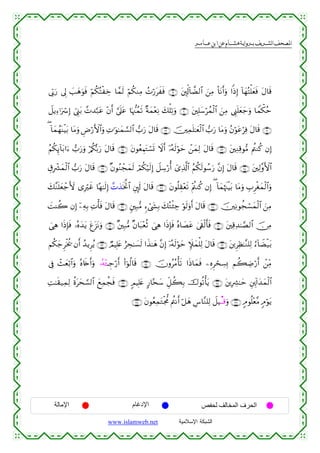 المصحف الشريف برواية هشام عن ابن عامر
قَالَ فَعَلْتُهَآ إِذًا وَأَنَا۠ مِنَ ٱلضَّآلِّينَ ۝ فَفَرَرْتُ مِنكُمْ لَمَّا خِفْتُكُمْ فَوَهَبَ لِى رَبِّى
حُكْمًا وَجَعَلَنِى مِنَ ٱلْمُرْسَلِينَ ۝ وَتِلْكَ نِعْمَةٌ تَمُنُّهَا عَلَىَّ أَنْ عَبَّدتَّ بَنِىٓ إِسْرَٰٓءِيلَ
۝ قَالَ فِرْعَوْنُ وَمَا رَبُّ ٱلْعَٰلَمِينَ ۝ قَالَ رَبُّ ٱلسَّمَٰوَٰتِ وَٱلْأَرْضِ وَمَا بَيْنَهُمَآ
إِن كُنتُم مُّوقِنِينَ ۝ قَالَ لِمَنْ حَوْلَهُۥٓ أَلَا تَسْتَمِعُونَ ۝ قَالَ رَبُّكُمْ وَرَبُّ ءَابَآئِكُمُ
ٱلْأَوَّلِينَ ۝ قَالَ إِنَّ رَسُولَكُمُ ٱلَّذِىٓ أُرْسِلَ إِلَيْكُمْ لَمَجْنُونٌ ۝ قَالَ رَبُّ ٱلْمَشْرِقِ
وَٱلْمَغْرِبِ وَمَا بَيْنَهُمَآ إِن كُنتُمْ تَعْقِلُونَ ۝ قَالَ لَئِنِ ٱتَّخَذتَّ إِلَٰهًا غَيْرِى لَأَجْعَلَنَّكَ
مِنَ ٱلْمَسْجُونِينَ ۝ قَالَ أَوَلَوْ جِئْتُكَ بِشَىْءٍ مُّبِينٍ ۝ قَالَ فَأْتِ بِهِۦٓ إِن كُنتَ
مِنَ ٱلصَّٰدِقِينَ ۝ فَأَلْقَىٰ عَصَاهُ فَإِذَا هِىَ ثُعْبَانٌ مُّبِينٌ ۝ وَنَزَعَ يَدَهُۥ فَإِذَا هِىَ
بَيْضَآءُ لِلنَّٰظِرِينَ ۝ قَالَ لِلْمَلَإِ حَوْلَهُۥٓ إِنَّ هَٰذَا لَسَٰحِرٌ عَلِيمٌ ۝ يُرِيدُ أَن يُخْرِجَكُم
مِّنْ أَرْضِكُم بِسِحْرِهِۦ فَمَاذَا تَأْمُرُونَ ۝ قَالُوٓا۟ أَرْجِئْهُۥ وَأَخَاهُ وَٱبْعَثْ فِى
ٱلْمَدَآئِنِ حَٰشِرِينَ ۝ يَأْتُوكَ بِكُلِّ سَحَّارٍ عَلِيمٍ ۝ فَجُمِعَ ٱلسَّحَرَةُ لِمِيقَٰتِ
يَوْمٍ مَّعْلُومٍ ۝ وَقِيلَ لِلنَّاسِ هَلْ أَنتُم مُّجْتَمِعُونَ ۝
الحرف المخالف لحفص الإدغام الإمالة
الشبكة الإسلامية www.islamweb.net